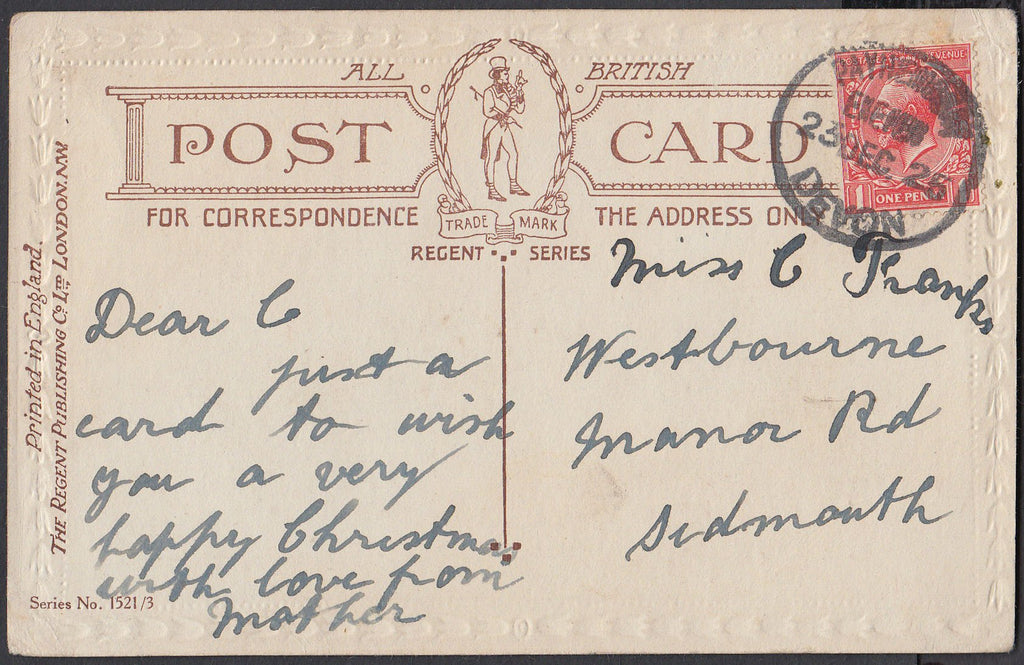 ALL BRITISH
POST CARD
FOR CORRESPONDENCE THE ADDRESS ONLY
TRADE MARK
REGENT SERIES
REVENUE
ONE PENNY
23 DEC 26
DEVON
Printed in England.
THE REGENT PUBLISHING Co LTD LONDON.N.W
Dear C
just a
card to wish
you a very
happy Christmas
with love from
Mother
Miss C
Westbourne
Manor Rd
Sidmouth
Series No. 1521/3